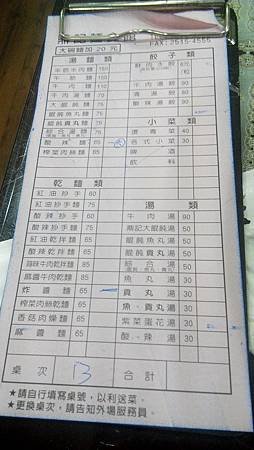 FAX:2515-4555
大碗麵加 20 元
湯麵類 餃子類
半筋半肉麵 150 鮮肉水餃 6元/粒
牛筋麵 150
牛肉麵 110 牛肉湯餃 90
牛肉湯麵 70 清湯餃
大餛飩麵 75 酸辣湯餃 90
餛飩魚丸麵 75 小菜類
餛飩貢丸麵 75 燙青菜 40
綜合湯麵 各式小菜 30
酸辣麵 65 一 啤酒
榨菜肉絲麵 65 飲料
乾麵類
紅油抄手 60
紅油抄手麵 75 湯類
酸辣抄手 60 牛肉湯 50
酸辣抄手麵 75 鼎記大餛飩湯 50
紅油乾拌麵 65 餛飩魚丸湯 50
酸辣乾拌麵 65 餛飩貢丸湯 50
麻辣牛肉乾拌麵 85 綜合湯 50
麻醬牛肉乾麵 85 魚丸湯 30
炸醬麵 65 一 貢丸湯 30
榨菜肉絲乾麵 65 紫菜蛋花湯 30
香菇肉燥麵 65 酸辣湯 30
麻醬麵 65
桌次 13 合計
★請自行填寫桌號，以利送菜。
★更換桌次，請告知外場服務員。